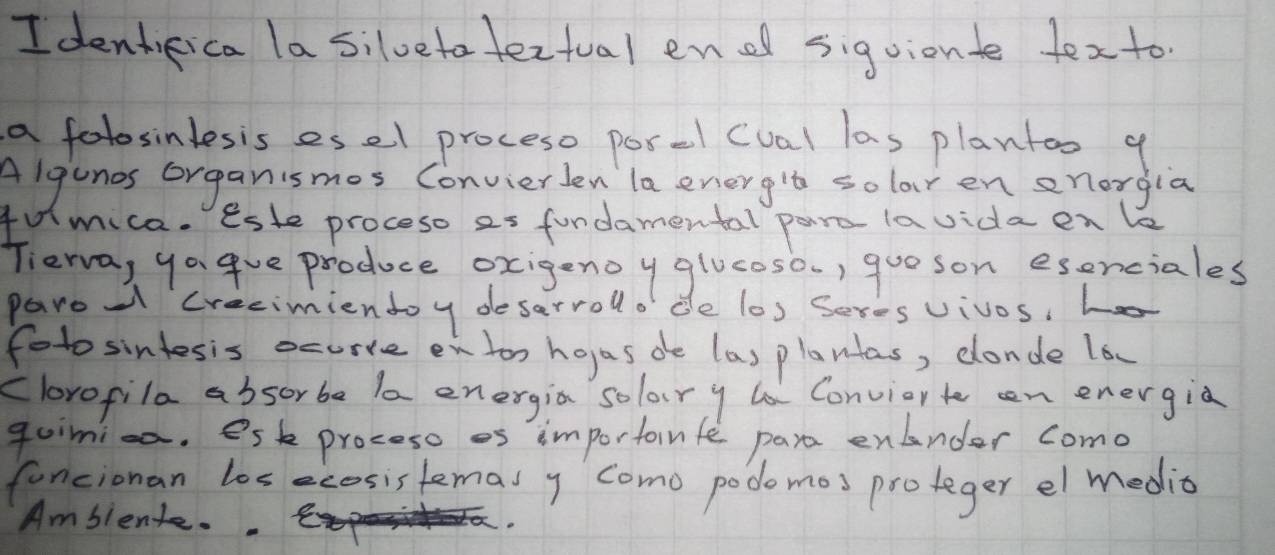 Identifica la silueta textual en el siguiente texto.
a fotosintesis es el proceso por el cual las plantas y
Algunos organismos convierten la energia solar en energia
quimica. Este proceso es fundamental para la vida en la
Tierra, ya que produce oxigeno y glucosa., que son esenciales
para el crecimiento y desarrollo de los seres vivos. La
fotosintesis ocurre en las hojas de las plantas, donde la
clorofila absorbe la energia solar y la convierte en energia
quimica. este proceso es importante para entender como
funcionan los ecosistemas y como podemos proteger el medio
Ambiente. . .